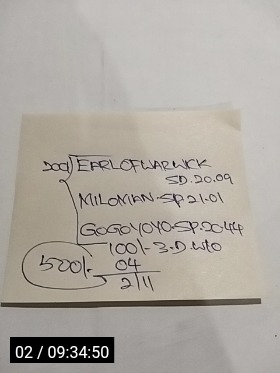 Dog EARLOFWARWICK
SD.20.09
MILONIAN-SP21.01
GOGOYOYO-SP.2044
100/- 3.D.W/O
500/- 04
2/11
02 / 09:34:50